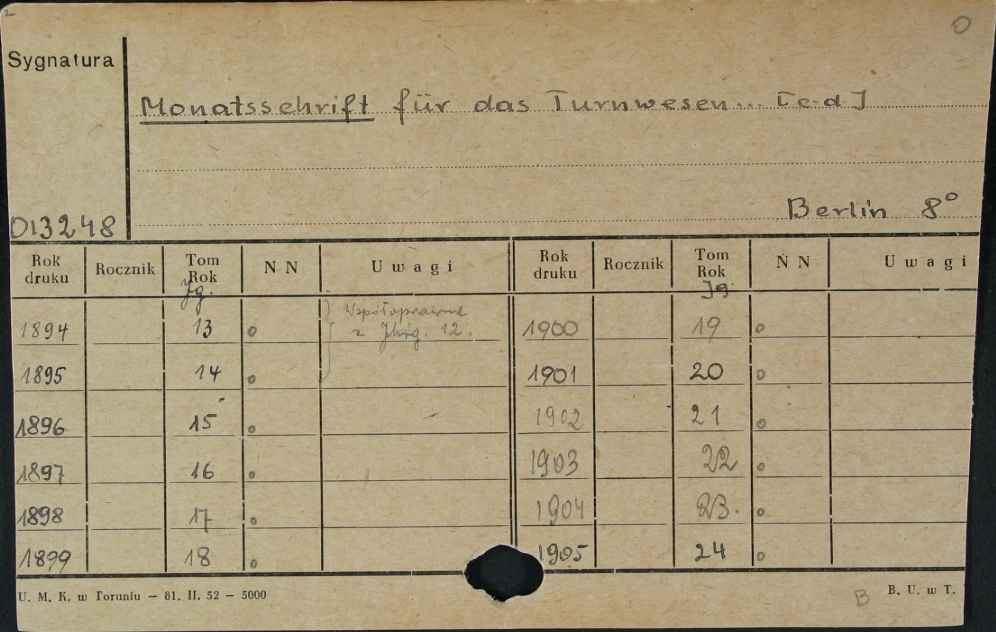 O
Sygnatura
Monatsschrift für das Turnwesen... [e-d]
Berlin 8°
013248
Rok druku Rocznik Tom Rok Jg. NN Uwagi Rok druku Rocznik Tom Rok Jg. NN Uwagi
1894 13 o Współoprawne z Jhrg. 12. 1900 19 o
1895 14 o 1901 20 o
1896 15 o 1902 21 o
1897 16 o 1903 22 o
1898 17 o 1904 23. o
1899 18 o 1905 24 o
U. M. K. w Toruniu — 81. II. 52 — 5000 B B. U. w T.